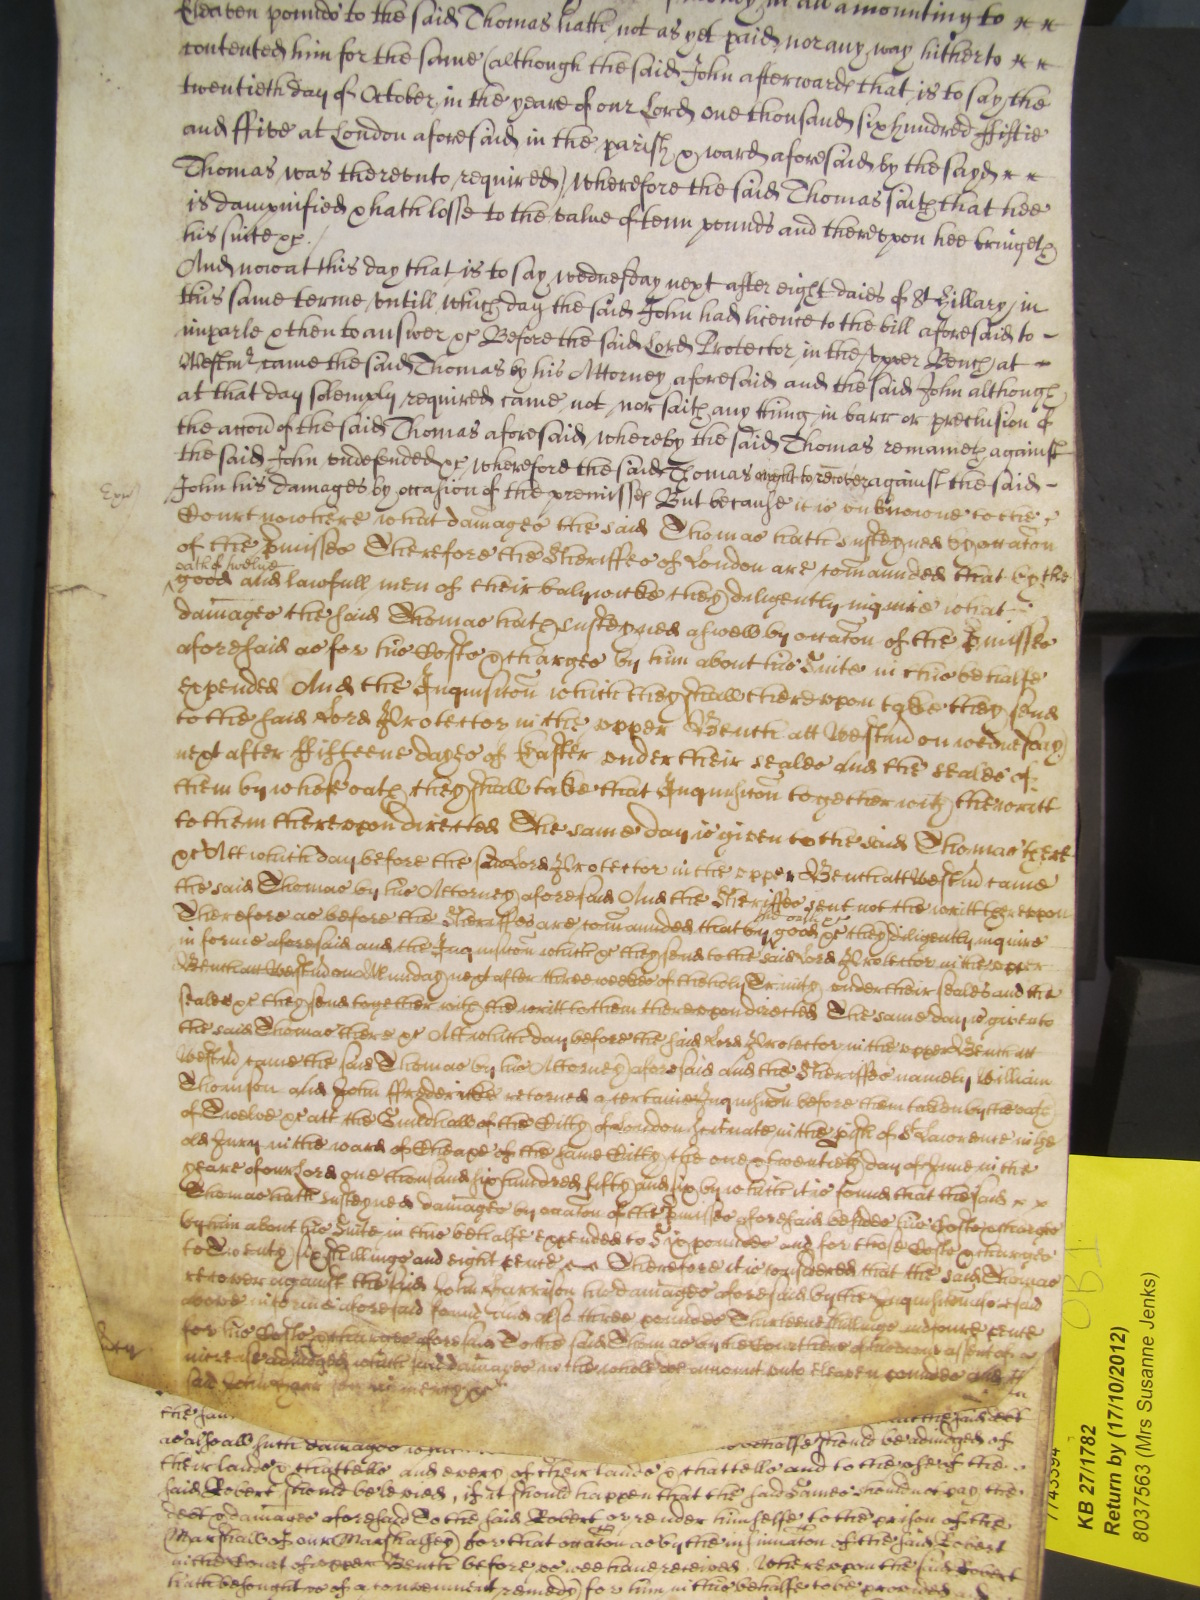 money in all amounting to
Eleaven pounds to the said Thomas hath not as yet paid nor any way hitherto
contented him for the same (although the said John afterwards that is to say the
twentieth day of October in the yeare of our Lord one thousand six hundred ffiftie
and ffive at London aforesaid in the parish & ward aforesaid by the sayd
Thomas was therevnto required) wherefore the said Thomas saith that hee
is dampnified & hath losse to the value of tenn pounds and therevpon hee bringeth
his suite &c.
And now at this day that is to say wednesday next after eight daies of St Hillary in
this same terme vntill which day the said John had licence to the bill aforesaid to -
imparle & then to answer &c Before the said Lord Protector in the vpper Bench at -
Westmr came the said Thomas by his Attorney aforesaid and the said John although
at that day solemply required came not nor saith any thing in barr or preclusion of
the accon of the said Thomas aforesaid whereby the said Thomas remaineth against
the said John vndefended &c wherefore the said Thomas ought to recover against the said -
John his damages by occasion of the premisses But because it is unknowne to the
Court now here what damages the said Thomas hath susteyned by occacon
of the pmisses Therefore the Sheriffes of London are comaunded that by the
oath of twelve
good and lawfull men of their balywicke they diligently inquire what
damages the said Thomas hath susteyned aswell by occacon of the pmisses
aforesaid as for his Costs & charges by him about his Suite in this behalfe
expended And the Inquisicon which they shall thereupon take they send
to the said Lord Protector in the upper Bench att Westm on wednesday
next after ffifteene dayes of Easter under their seales and the seales of
them by whose oath they shall take that Inquisicon together with the writt
to them thereupon directed The same day is given to the said Thomas there
&c Att which day before the said Lord Protector in the upper Bench att Westm came
the said Thomas by his Attorney aforesaid And the Sheriffes sent not the writt thereupon
Therefore as before the Sheriffes are comaunded that by
the oath &c
good &c they diligently inquire
in forme aforesaid and the Inquisicon which &c they send to the said Lord Protector in the upper
Bench att Westm on Munday next after three weekes of the holy Trinity under their seales and the
seales &c they send together with the writt to them thereupon directed The same day is given to
the said Thomas there &c Att which day before the said Lord Protector in the upper Bench att
Westm came the said Thomas by his Attorney aforesaid and the Sheriffes namely William
Thomson and John ffredericke returned a certaine Inquisicon before them taken by the oath
of Twelve &c att the Guildhall of the Citty of London scituate in the pish of St Lawrence in the
old Jury in the ward of Cheape of the same Citty the one & twentieth day of June in the
yeare of our Lord one thousand six hundred fifty and six by which it is found that the said
Thomas hath susteyned damages by occacon of the pmisses aforesaid besides his Costs & charges
by him about his Suite in this behalfe expended to Six pounds and for those Costs & charges
to Twenty six shillings and eight pence Therefore it is considered that the said Thomas
recover against the said John Harrison his damages aforesaid by the Inquisicon aforesaid
above in forme aforesaid found And also three pounds Thirteene shillings and foure pence
for his Costs & charges aforesaid To the said Thomas by the Court here of his owne assent of
increase adiudged which said damages in the whole doe amount unto Eleaven pounds And
said John in mercy &c
the said
as also all such damages behalfe should be adiudged of
their lands & chattells and every of their lands & chattells and to the use of the
said Robert should be levied, if it should happen that the said James should not pay the
debt & damages aforesaid To the said Robert or render himselfe to the prison of the
(Marshall of our Marshalsey) for that occacon as by the insinuacon of the said Robert
in the Court of upper Bench before us wee have received Whereupon the said Robert
hath besought us of a convenient remedy for him in this behalfe to be provided and
KB 27/1782
Return by (17/10/2012)
8037563 (Mrs Susanne Jenks)